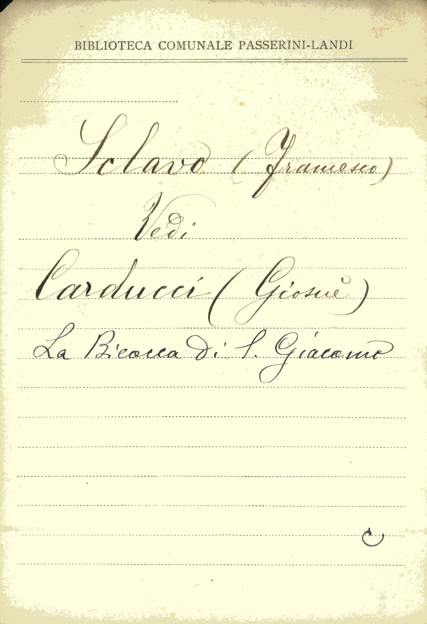 BIBLIOTECA COMUNALE PASSERINI-LANDI
Sclavo (Francesco)
Vedi
Carducci (Giosuè)
La Bicocca di S. Giacomo